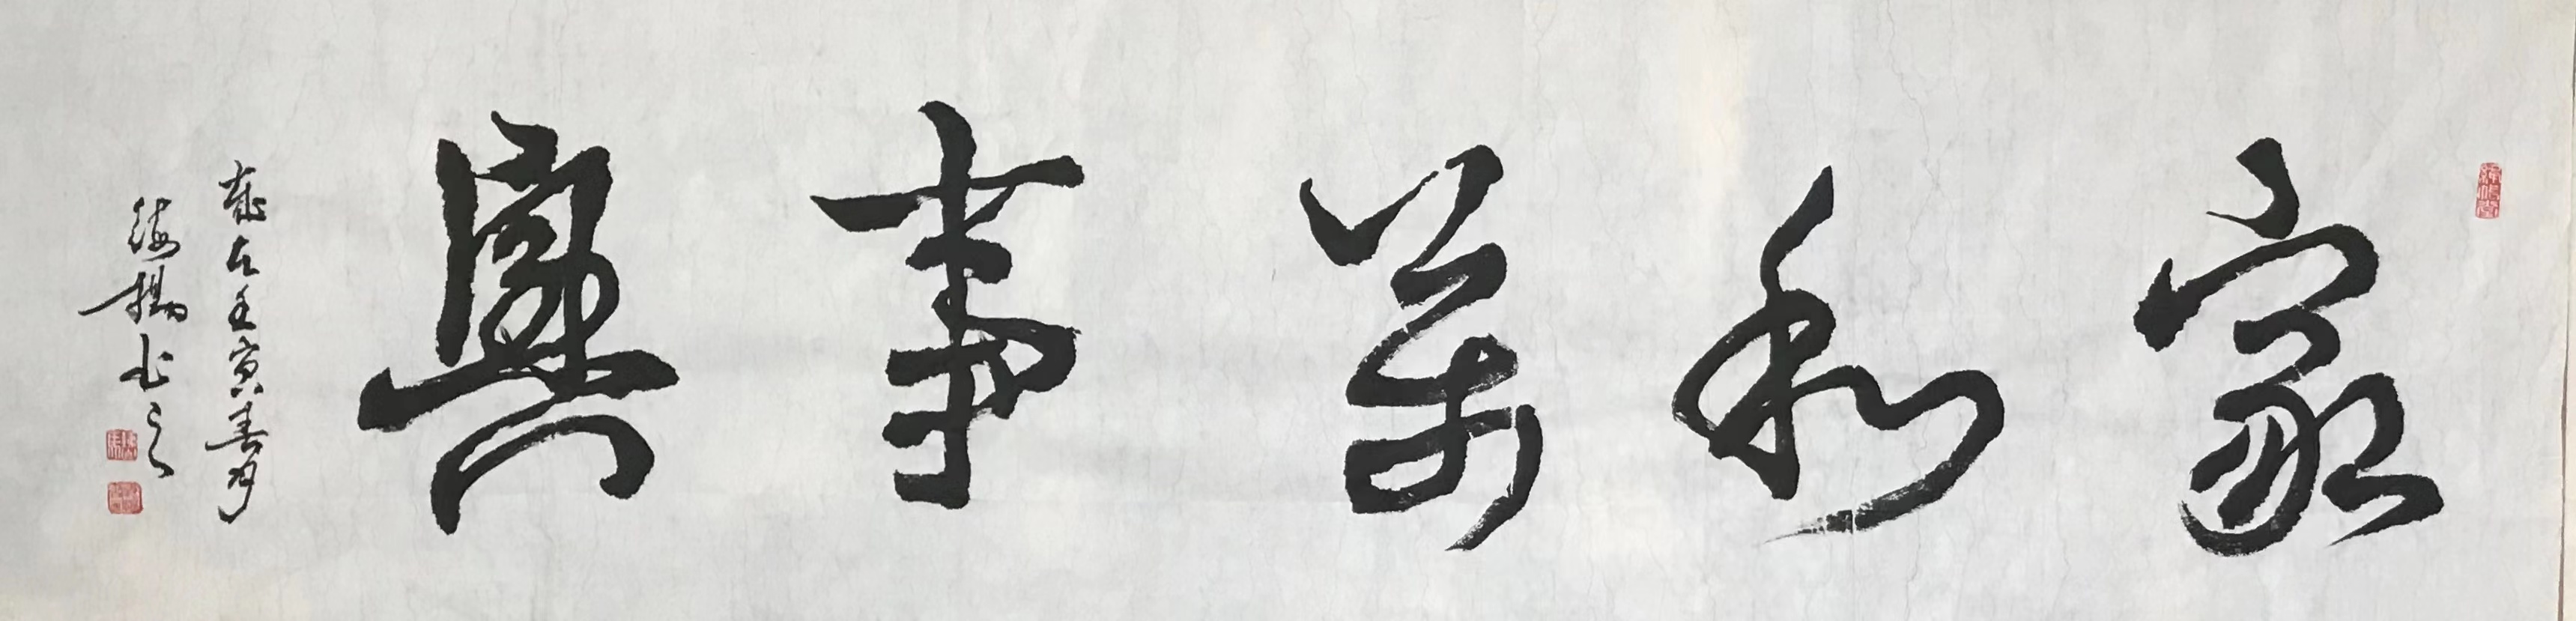 家和萬事興
歲在壬寅春月
海楊书之